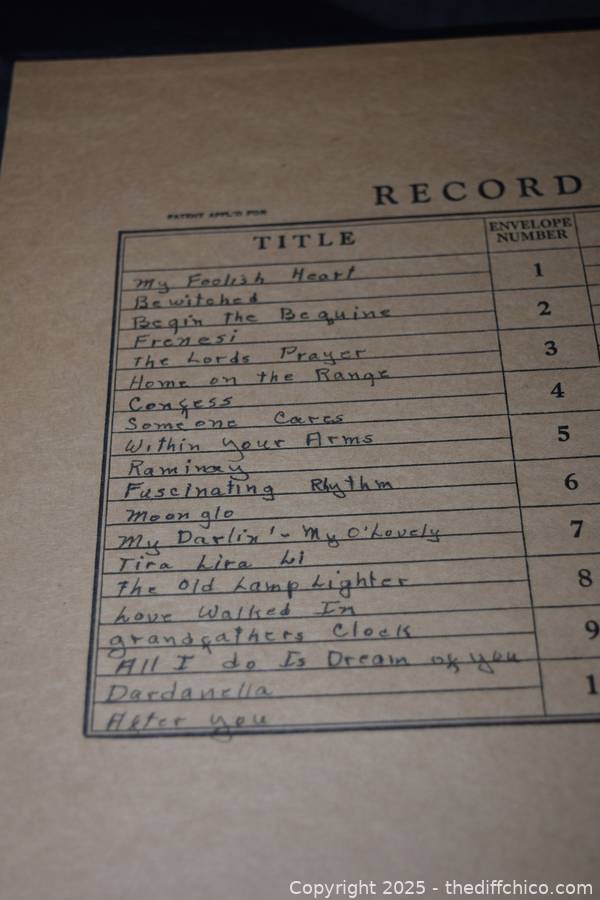 RECORD
PATENT APPL'D FOR
TITLE
ENVELOPE NUMBER
My Foolish Heart
1
Bewitched
Begin the Beguine
2
Frenesi
the Lords Prayer
3
Home on the Range
Confess
4
Someone Cares
Within your Arms
5
Raminay
Fuscinating Rhythm
6
Moonglo
My Darlin'- My O'Lovely
7
Tira Lira Li
the Old Lamp Lighter
8
Love Walked In
grandfathers Clock
9
All I do Is Dream of you
Dardanella
1
After you
Copyright 2025 - thediffchico.com